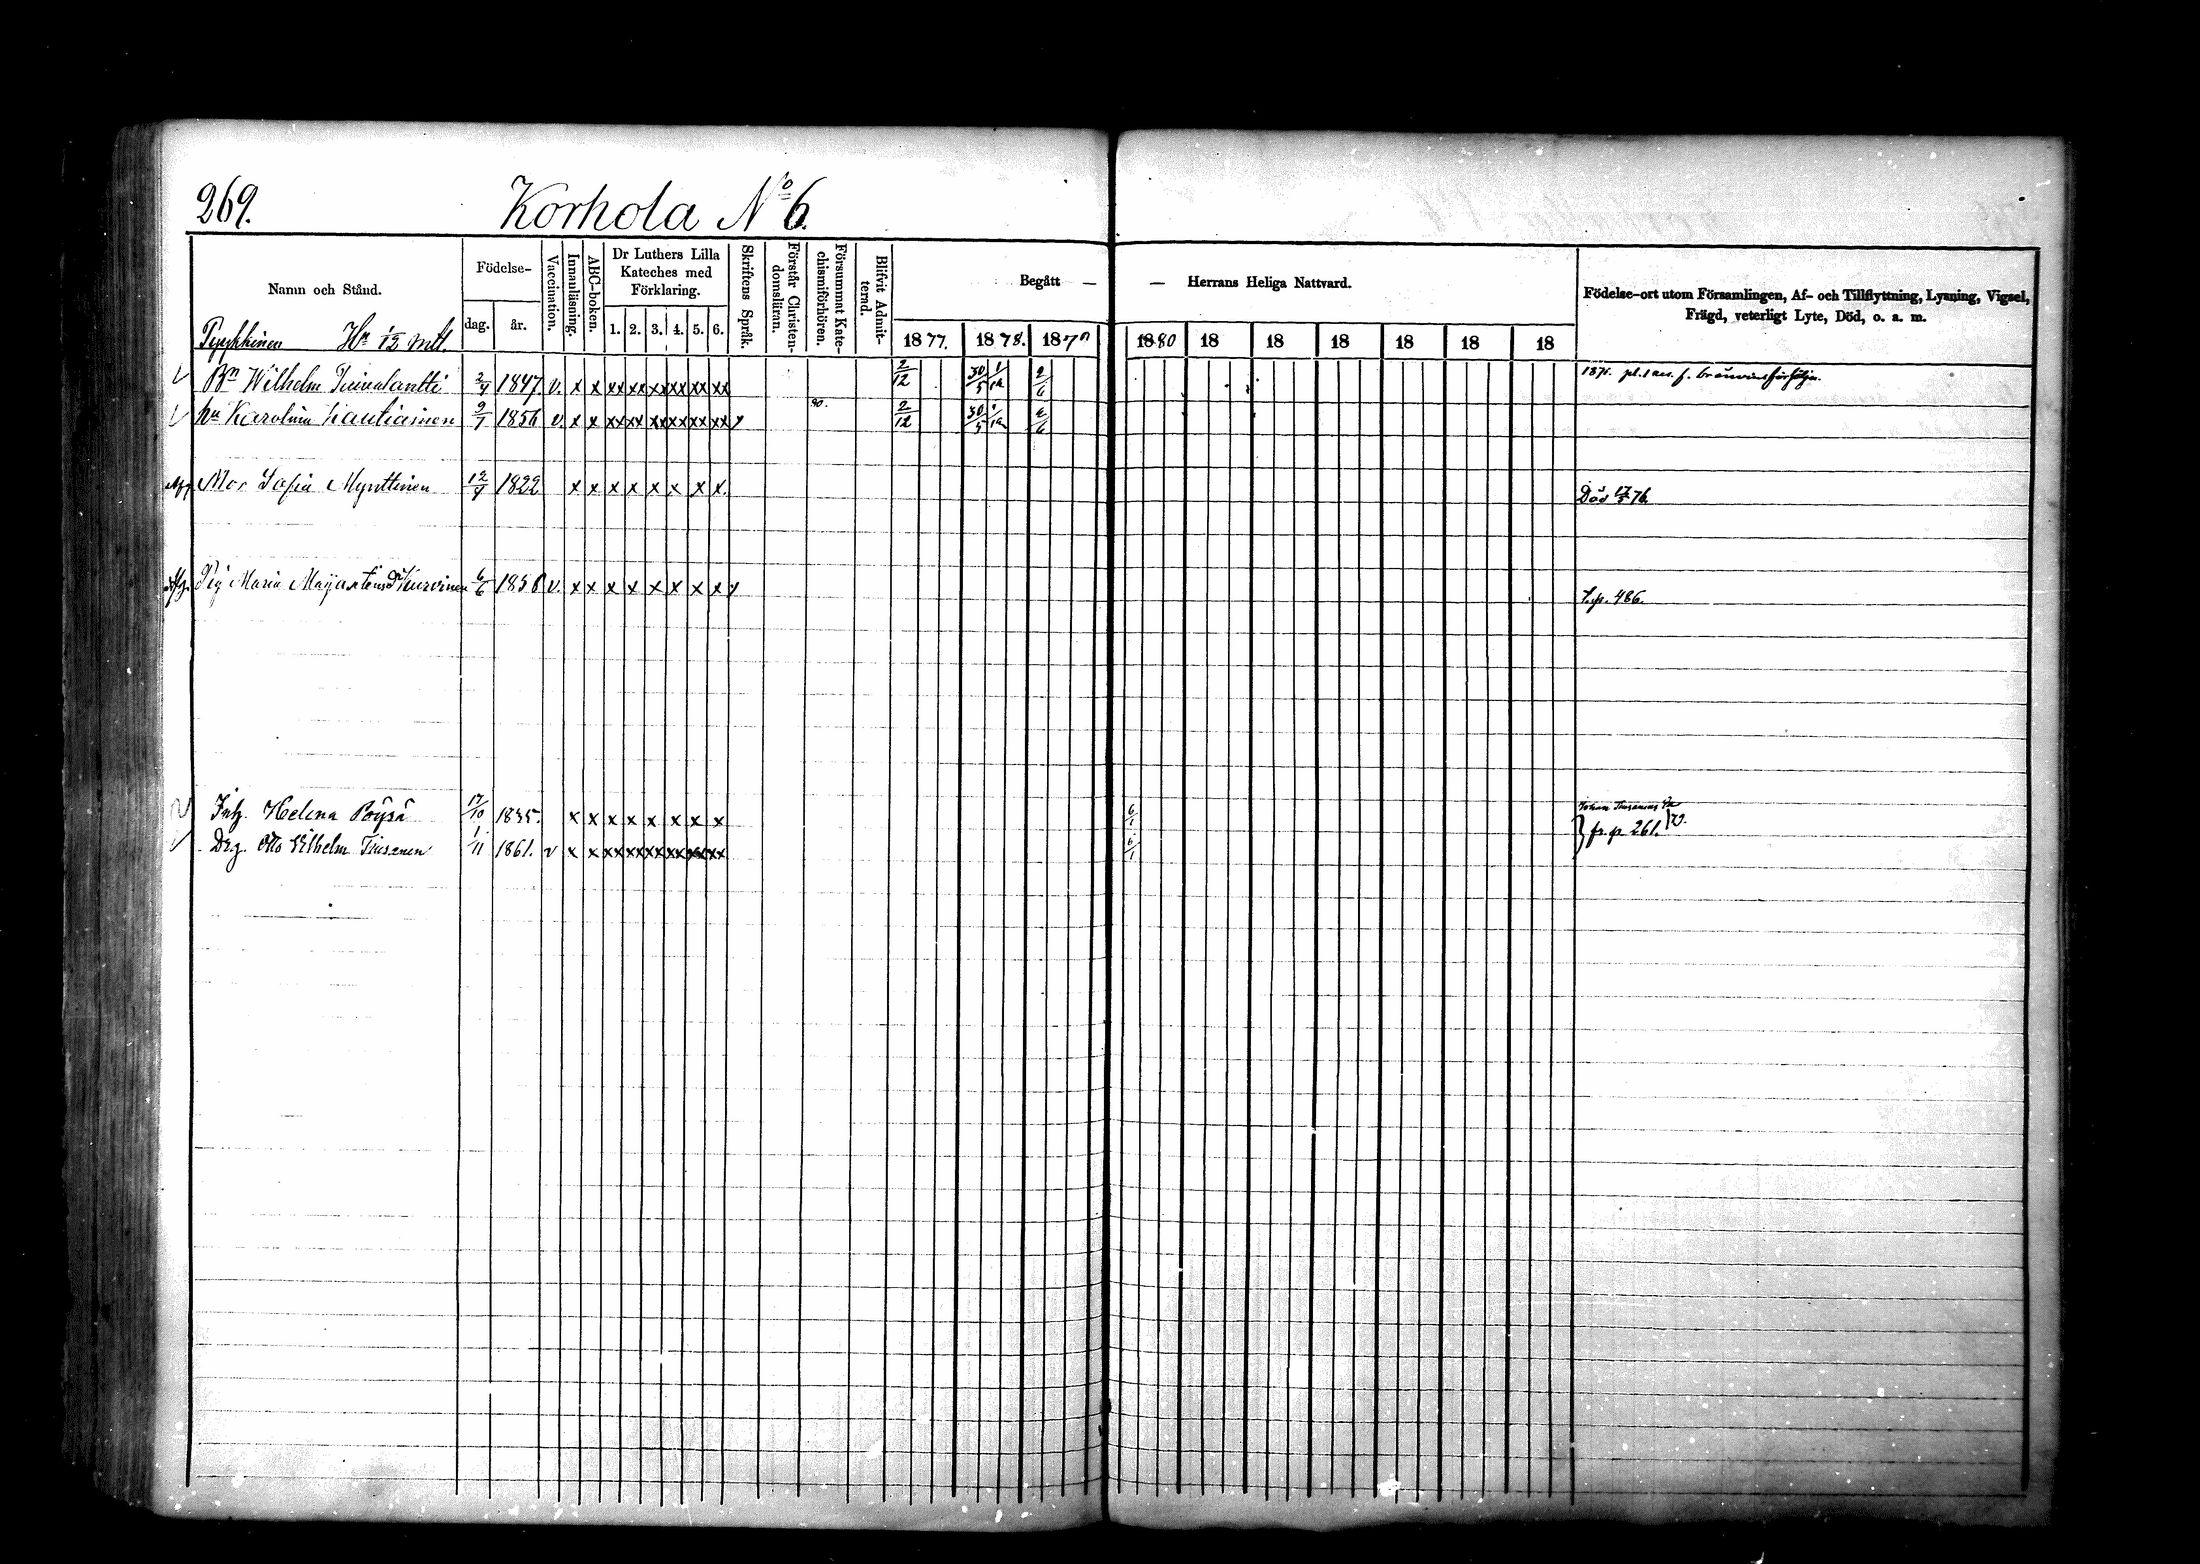 269. Korhola No 6.
Namn och Stånd.
Födelse-
dag. år.
Vaccination.
Innanläsning.
ABC-boken.
Dr Luthers Lilla
Kateches med
Förklaring.
1. 2. 3. 4. 5. 6.
Skriftens Språk.
Förstår Christen-
domsläran.
Försummat Kate-
chismiförhören.
Blifvit Admit-
terad.
Begått — — Herrans Heliga Nattvard.
1877. 1878. 1879 1880 18 18 18 18 18 18
Födelse-ort utom Församlingen, Af- och Tillflyttning, Lysning, Vigsel,
Frägd, veterligt Lyte, Död, o. a. m.
Hn 1/2 mtl.
Bn Wilhelm 2/4 1847. v. x x xx xx xx xx xx xx 2/12 30/5 1/12 2/6 f. bränvinsförsäljn.
hu Karolina Lautiainen 9/7 1856 v. x x xx xx xx xx xx xx y 80. 2/12 30/5 1/12 2/6
Mor Sofia Mynttinen 12/4 1822 x x x x x x x x. Död 17/5 76
Pig Maria 6/6 1856 v. x x x x x x x x y T. p. 486.
Inh. Helena Pöysä 17/10 1835. x x x x x x x x 6/1 Johan
Drg. Otto Vilhelm Tiusanen 1/11 1861. v x x xx xx xx xx xx xx 6/1 fr. p. 261.